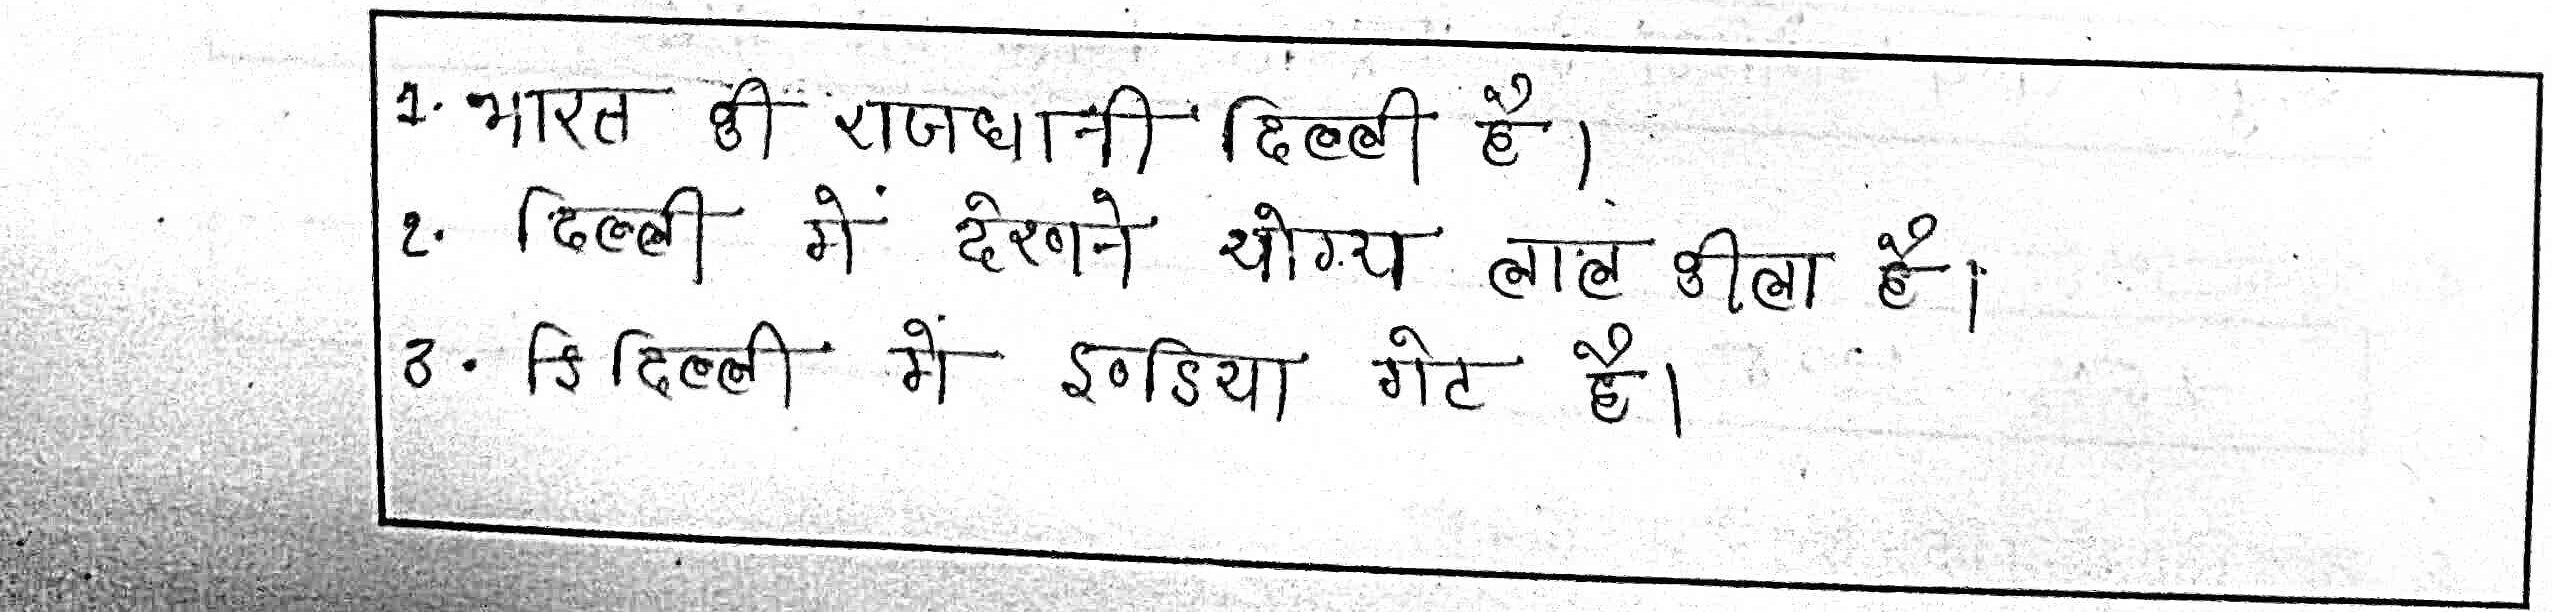 1. भारत की राजधानी दिल्ली है।
2. दिल्ली में देखने योग्य लाल कीला है।
3. कि दिल्ली में इण्डिया गेट है।